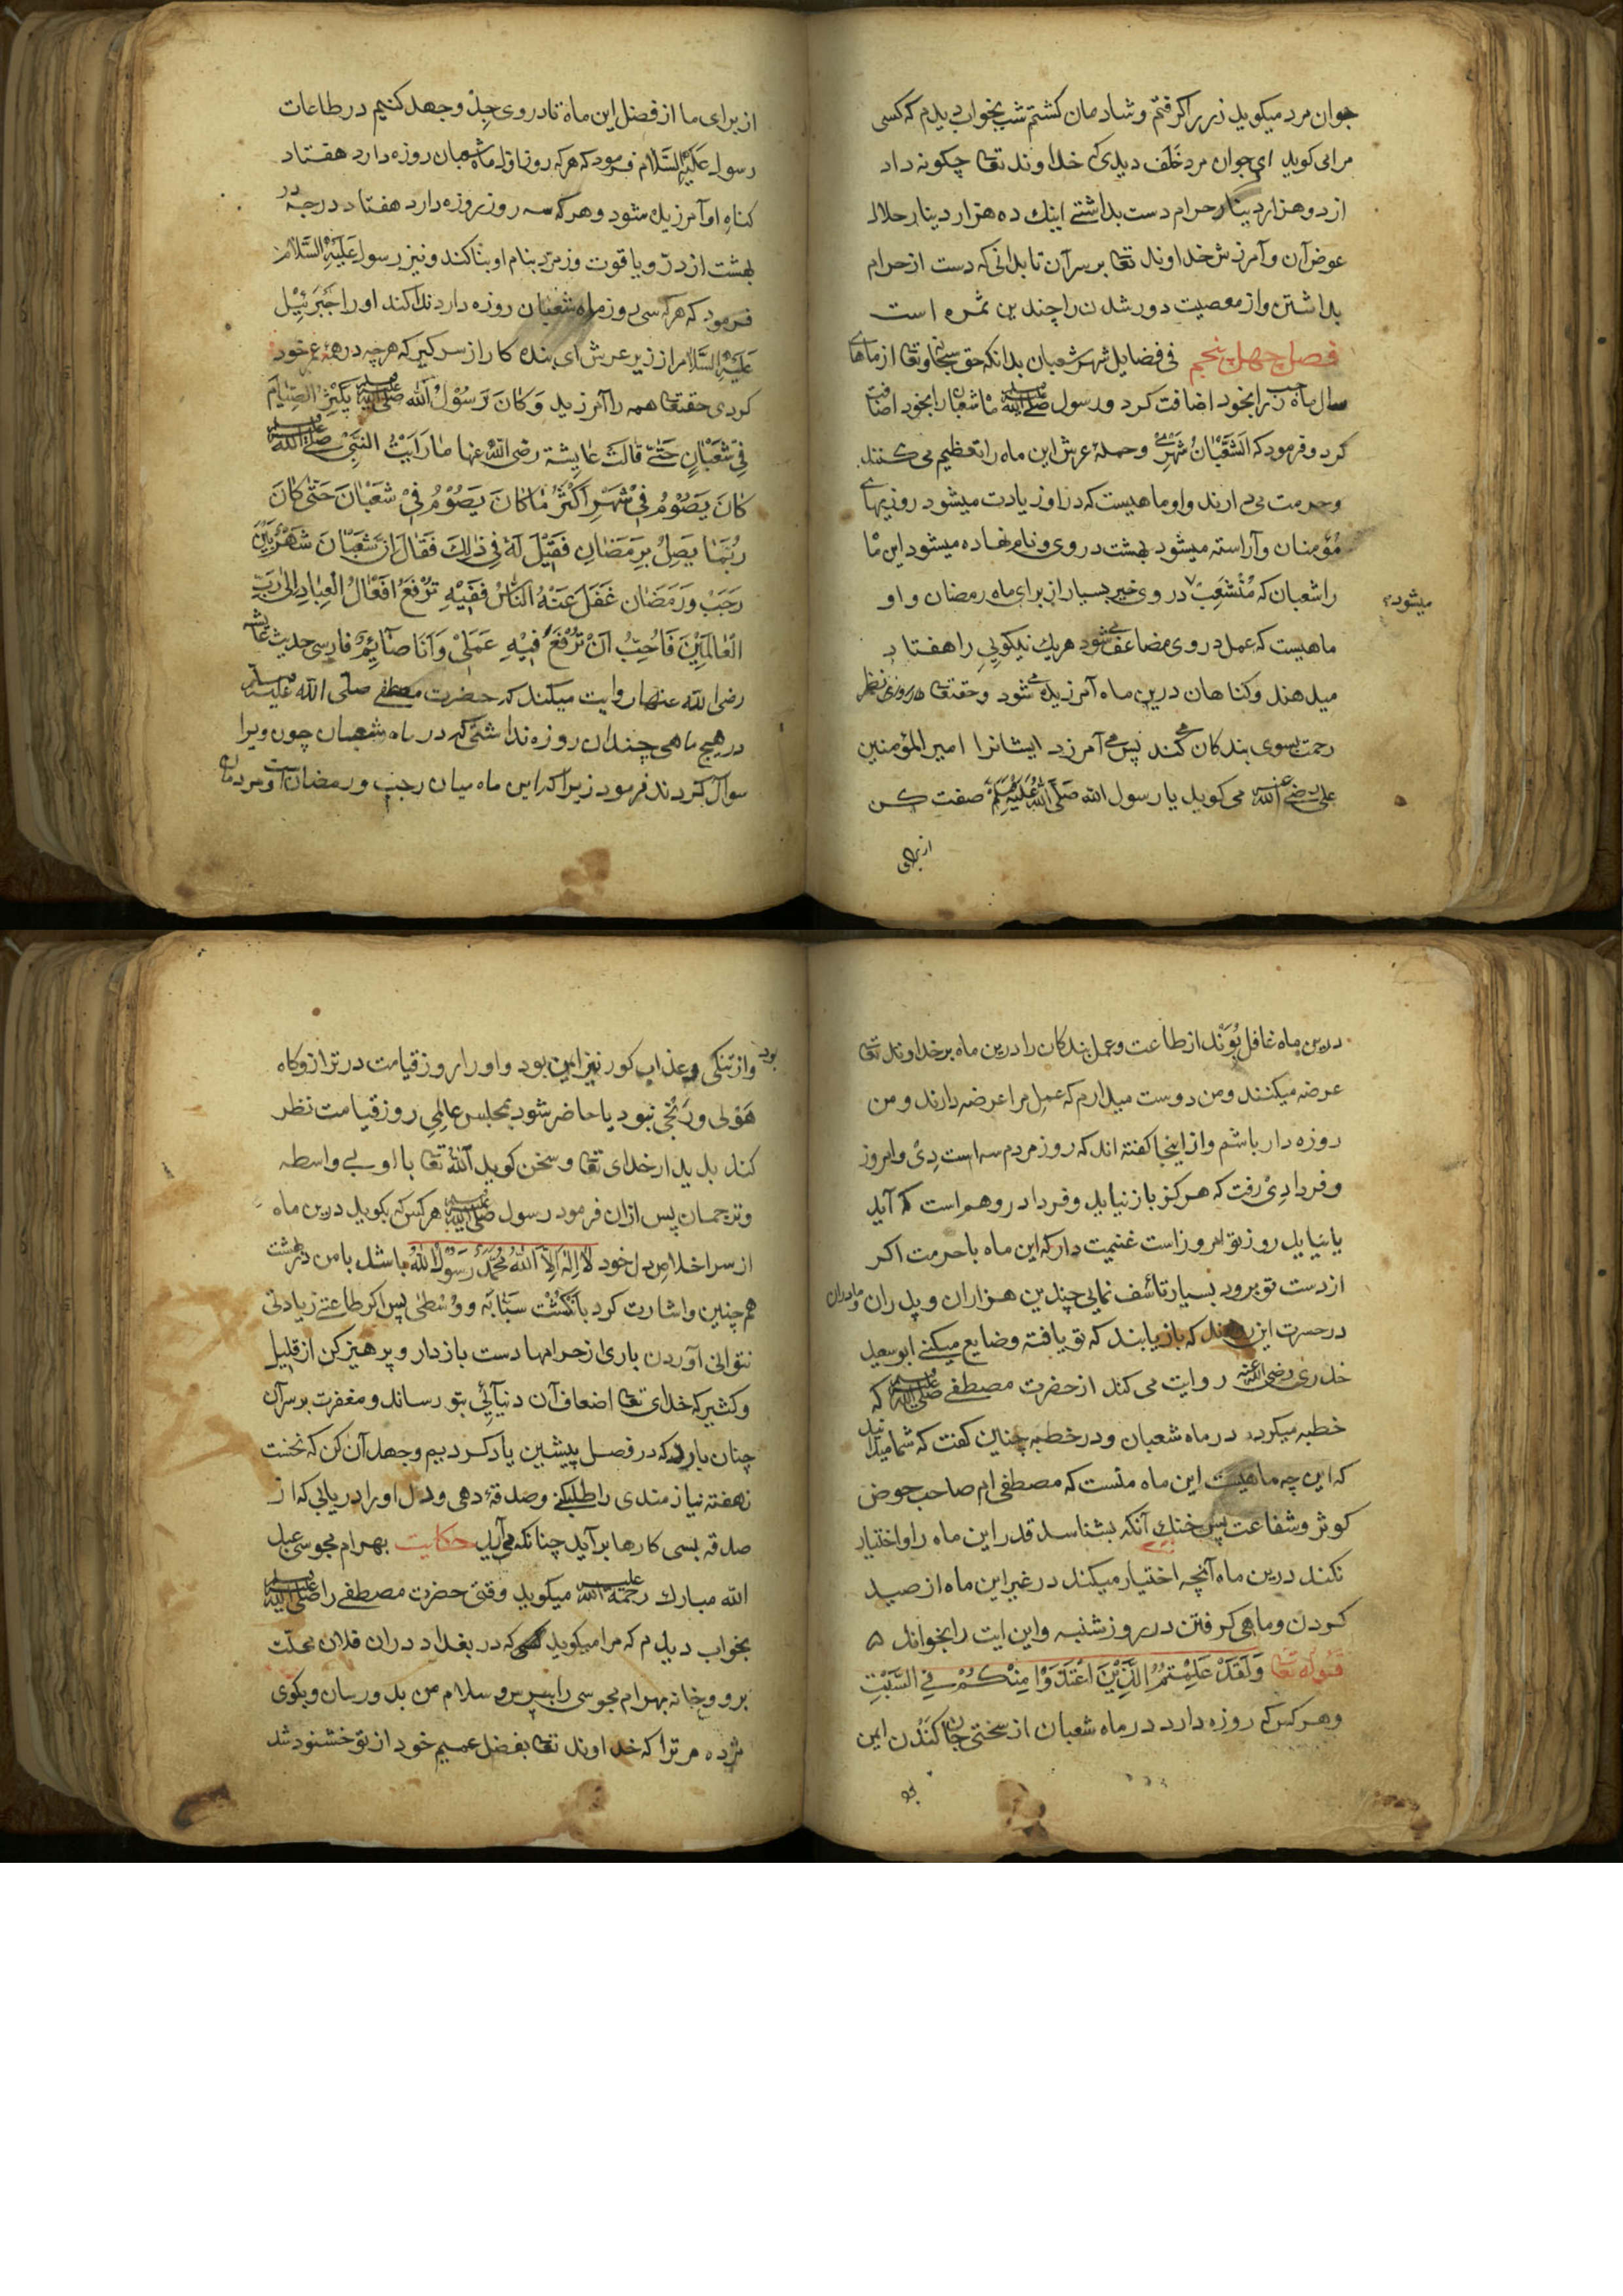 جوان مرد میکوید زر را کرفتم و شادمان کشتم شب بخواب دیدم که کسی
مرا می کوید ای جوان مرد خَلَف دیدی که خداوند تعا چکونه داد
از دو هزار دینار حرام دست بداشتے اینک ده هزار دینار حلال
عوض آن و آمرزش خداوند تعا بر سر آن تا بدانی که دست از حرام
بداشتن و از معصیت دور شدن را چندین ثمره است
فصل چهل پنجم فی فضایل شهر شعبان بدانکه حق سبحانه وتعا از ماهاے
سال ماه رجب را بخود اضافت کرد و رسول صلی الله علیه وسلم ماه شعبان را بخود اضافت
کرد و فرمود که اَلشَّعْبَانُ شَهْرِیْ و حملهٔ عرش این ماه را تعظیم می کنند
و حرمت می دارند و او ماهیست که در او زیادت میشود روزیهاے
مؤمنان و آراسته میشود بهشت در وی و نام نهاده میشود این ماه
را شعبان که مُنْشَعِبْ در وی خیر بسیار از برای ماه رمضان و او
میشود
ماهیست که عمل در وی مضاعف می شود هر یک نیکویی را هفتاد
میدهند و کناهان درین ماه آمرزیده می شود و حقتعا هر روزی نظر
رحمت بسوی بندکان می کند پس می آمرزد ایشانرا امیر المؤمنین
علی رضی الله عنه می کوید یا رسول الله صَلَّی اللهُ عَلَیْهِ وَسَلَّمَ صفت کن
از برای
از برای ما از فضل این ماه تا در وی جِدْ و جهد کنیم در طاعات
رسول عَلَیْهِ السَّلَام فرمود که هر که روز اول ماه شعبان روزه دارد هفتاد
کناهِ او آمرزیده شود و هر که سه روز روزه دارد هفتاد درجه در
بهشت از درّ و یاقوت و زمرّد بنام او بنا کند و نیز رسول عَلَیْهِ السَّلَام
فرمود که هر که سی روز ماه شعبان روزه دارد ندا کند او را جَبْرَئِیْل
عَلَیْهِ السَّلَام از زیر عرش ای بنده کار از سر کیر که هر چه در همه عمر خود
کردی حقتعا همه را آمرزید وَکَانَ رَسُوْلُ الله صلی الله علیه وسلم یَکْثِرُ الصِّیَامَ
فِیْ شَعْبَانٍ حَتّٰے قَالَتْ عَایِشَة رضی الله عنها مَا رَاَیْتُ النَّبِیَّ صلی الله علیه وسلم
کَانَ یَصُوْمُ فِیْ شَهْرٍ اَکْثَرُ مَا کَانَ یَصُوْمُ فِیْ شَعْبَانَ حَتّٰی کَانَ
رُبَمَا یَصِلُ بِرَمَضَانِ فَقِیْلَ لَهُ فِی ذٰلِكَ فَقَالَ اِنَّ شَعْبَانَ شَهْرٌ بَیْنَ
رَجَبْ وَرَمَضَان غَفَلَ عَنْهُ النَّاسُ فَفِیْهِ تُرْفَعُ اَفْعَالُ الْعِبَادِ اِلٰی رَبِّ
الْعَالَمِیْنَ فَاُحِبُّ اَنْ تُرْفَعَ فِیْهِ عَمَلِیْ وَاَنَا صَآئِمٌ فارسی حدیث عایشه
رضی الله عنها روایت میکند که حضرت مصطفے صلّی الله علیه وسلّم
در هیچ ماهی چندان روزه نداشتی که در ماه شعبان چون ویرا
سوال کردند فرمود زیرا که این ماه میان رجب و رمضان است و مردمان
درین ماه غافل بُوَنْد از طاعت و عمل بندکان را درین ماه بر خداوند تعا
عرضه میکنند و من دوست میدارم که عمل مرا عرضه دارند و من
روزه دار باشم و از اینجا کفته اند که روز مردم سه است دِیْ و امروز
و فردا دِیْ رفت که هرکز باز نیاید و فردا در وهم است که آید
یا نیاید روز تو امروز است غنیمت دار که این ماه با حرمت اکر
از دست تو برود بسیار تأسّف نمایی چندین هزاران و پدران و مادران
در حسرت این روزند که باز یابند که تو یافته و ضایع میکنے ابو سعید
خدری رضی الله عنه روایت می کند از حضرت مصطفے صلی الله علیه وسلم که
خطبه میکرد در ماه شعبان و در خطبه چنین کفت که شما میدانید
که این چه ماهیست این ماه منست که مصطفی ام صاحب حوض
کوثر و شفاعت پس خنك آنکه بشناسد قدر این ماه را و اختیار
نکند درین ماه آنچه اختیار میکند در غیر این ماه از صید
کردن و ماهی کرفتن در روز شنبه و این ایت را بخواند
قوله تعا وَلَقَدْ عَلِمْتُمُ الَّذِیْنَ اعْتَدَوْا مِنْکُمْ فِی السَّبْتِ
و هر کس که روزه دارد در ماه شعبان از سختی جان کَنْدن ایمن
بود
بود و از تنکی و عذاب کور نیز ایمن بود و او را روز قیامت در ترازوکاه
هَوْلی و رَنْجی نبود یا حاضر شود بمجلس عالِمی روز قیامت نظر
کند بدیدار خدای تعا و سخن کوید اَللهُ تعا با او بے واسطه
و ترجمان پس از ان فرمود رسول صلی الله علیه وسلم هر کس که بکوید درین ماه
از سر اخلاصِ دل خود لَا اِلٰهَ اِلَّا اللهُ مُحَمَّدٌ رَسُوْلُ اللهِ باشد با من در بهشت
همچنین و اشارت کرد باَنْکُشْت سَبَّابَه و وُسْطٰی پس اکر طاعتے زیادتی
نتوانی آوردن باری از حرامها دست باز دار و پرهیز کن از قلیل
و کثیر که خدای تعا اضعاف آن دنیآئی بتو رساند و مغفرت بر سر آن
چنان بارد که در فصل پیشین یاد کردیم و جهد آن کن که نخست
نهفته نیازمندی را طلب کنے و صدقهٔ دهی و دل او را دریابی که از
صدقه بسی کارها برآید چنانکه می آید حکایت بهرام مجوسی عبد
الله مبارك رحمة الله علیه میکوید وقتی حضرت مصطفے را صلی الله علیه وسلم
بخواب دیدم که مرا میکوید که در بغداد در ان فلان محلت
برو و خانه بهرام مجوسی را بپرس و سلام من بدو رسان و بکوی
مژده مر ترا که خداوند تعا بفضل عمیم خود از تو خشنود شد